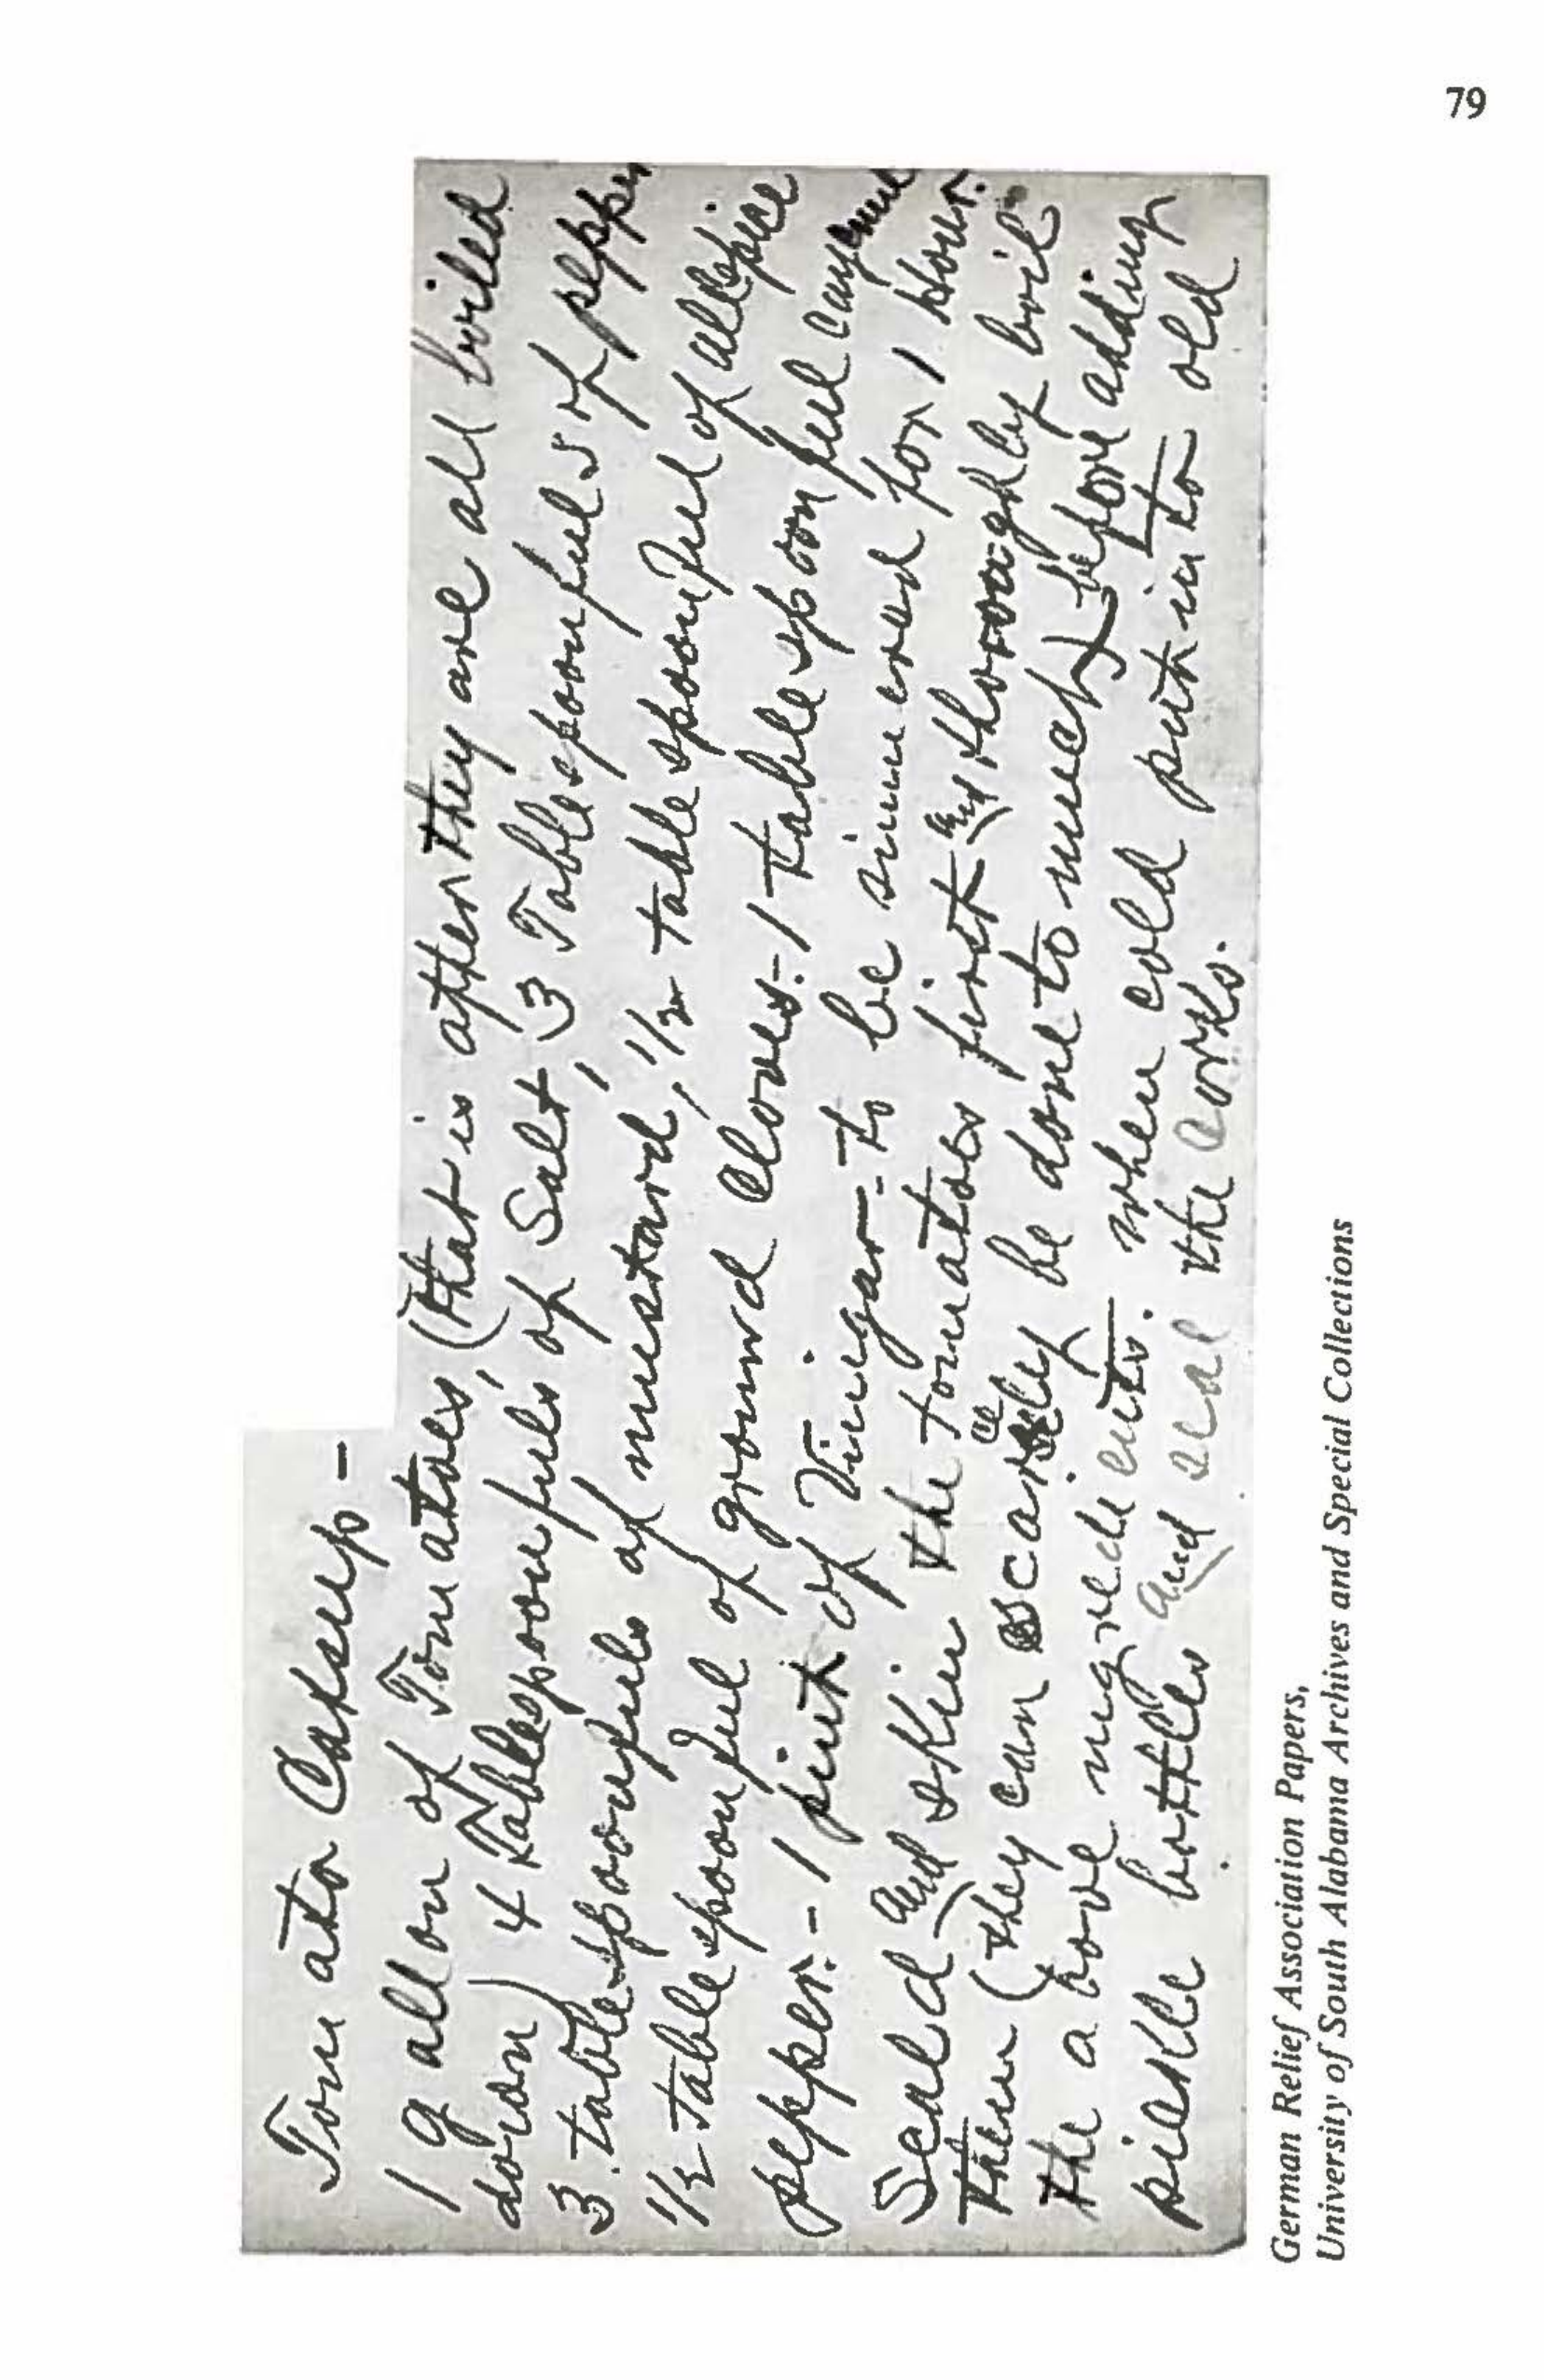 79
Tomato Catsup -
1 gallon of Tomatoes, (that is after they are all boiled
down) 4 Tablespoonfuls of Salt, 3 Tablespoonfuls of pepper
3 tablespoonfuls of mustard, 1/2 tablespoonful of allspice
1/2 tablespoonful of ground cloves. 1 tablespoonful cayenne
pepper. - 1 pint of Vinigar - to be simmered for 1 Hour.
Scald and skin the tomatoes first and thoroughly boil
them (they can scarcely be done to much) before adding
the above ingredients. when cold put into old
pickle bottles and seal the corks.
German Relief Association Papers,
University of South Alabama Archives and Special Collections